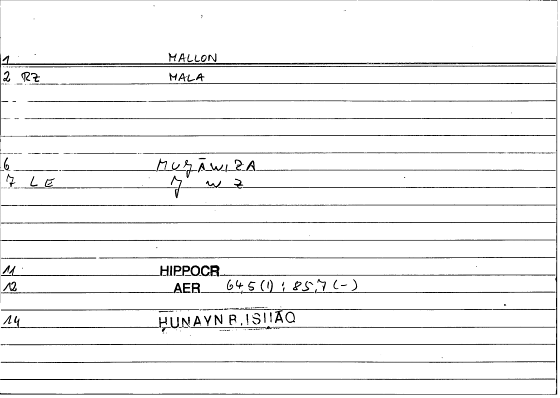 1 MALLON
2 RZ MALA
6 MUǦĀWIZA
7 LE ǧ w z
11 HIPPOCR.
12 AER 64,5 (1) ; 85,7 (-)
14 ḤUNAYN B. ISḤĀQ